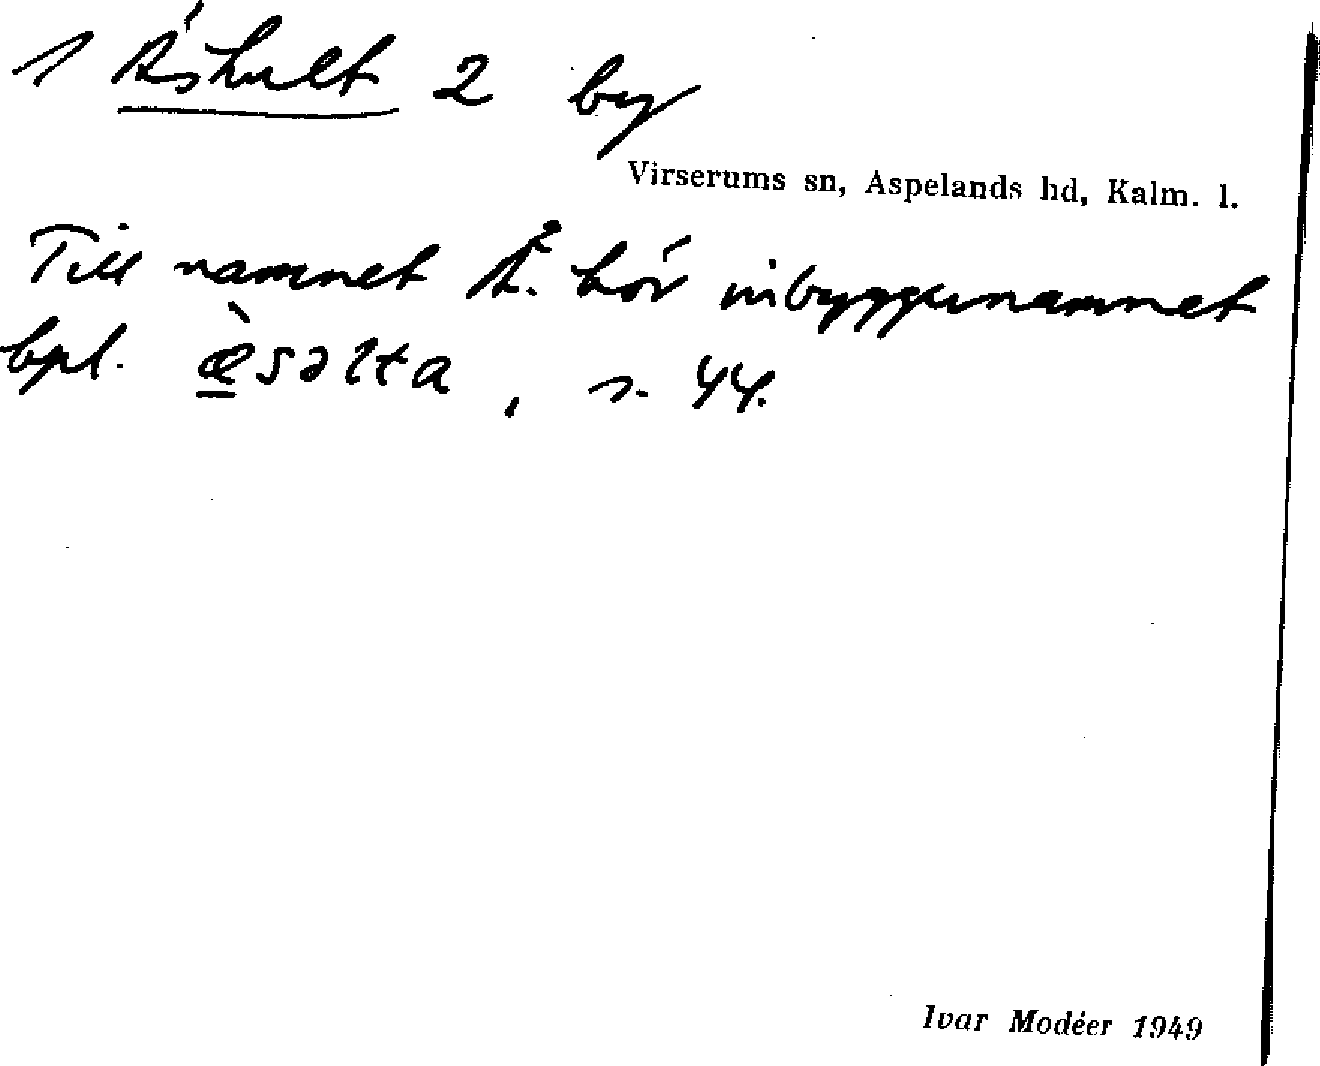 1 Åshult 2 by
Virserums sn, Aspelands hd, Kalm. l.
Till namnet Å. hör inbyggarnamnet
bpl. æ̀səlta, s. 44.
Ivar Modéer 1949